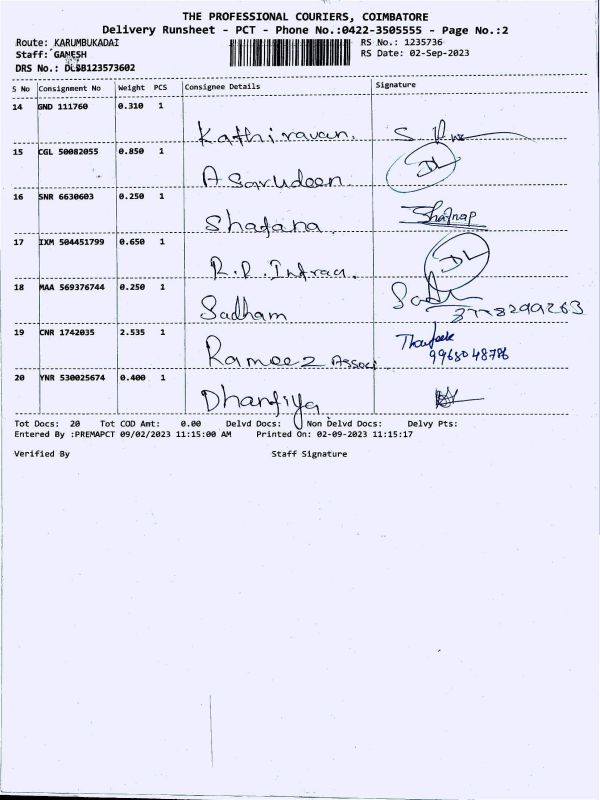 THE PROFESSIONAL COURIERS, COIMBATORE
Delivery Runsheet - PCT - Phone No.:0422-3505555 - Page No.:2
Route: KARUMBUKADAI RS No.: 1235736
Staff: GANESH RS Date: 02-Sep-2023
DRS No.: DLSB123573602
S No Consignment No Weight PCS Consignee Details Signature
14 GND 111760 0.310 1
Kathiravan.
15 CGL 50082055 0.850 1 DL
A Sarudeen
16 SNR 6630603 0.250 1
Shafana Shafnap
17 IXM 504451799 0.650 1
R.P. DL
18 MAA 569376744 0.250 1
Sadham
19 CNR 1742035 2.535 1
Rameez Associ 9968048786
20 YNR 530025674 0.400 1
Dhanfiya
Tot Docs: 20 Tot COD Amt: 0.00 Delvd Docs: Non Delvd Docs: Delvy Pts:
Entered By :PREMAPCT 09/02/2023 11:15:00 AM Printed On: 02-09-2023 11:15:17
Verified By Staff Signature